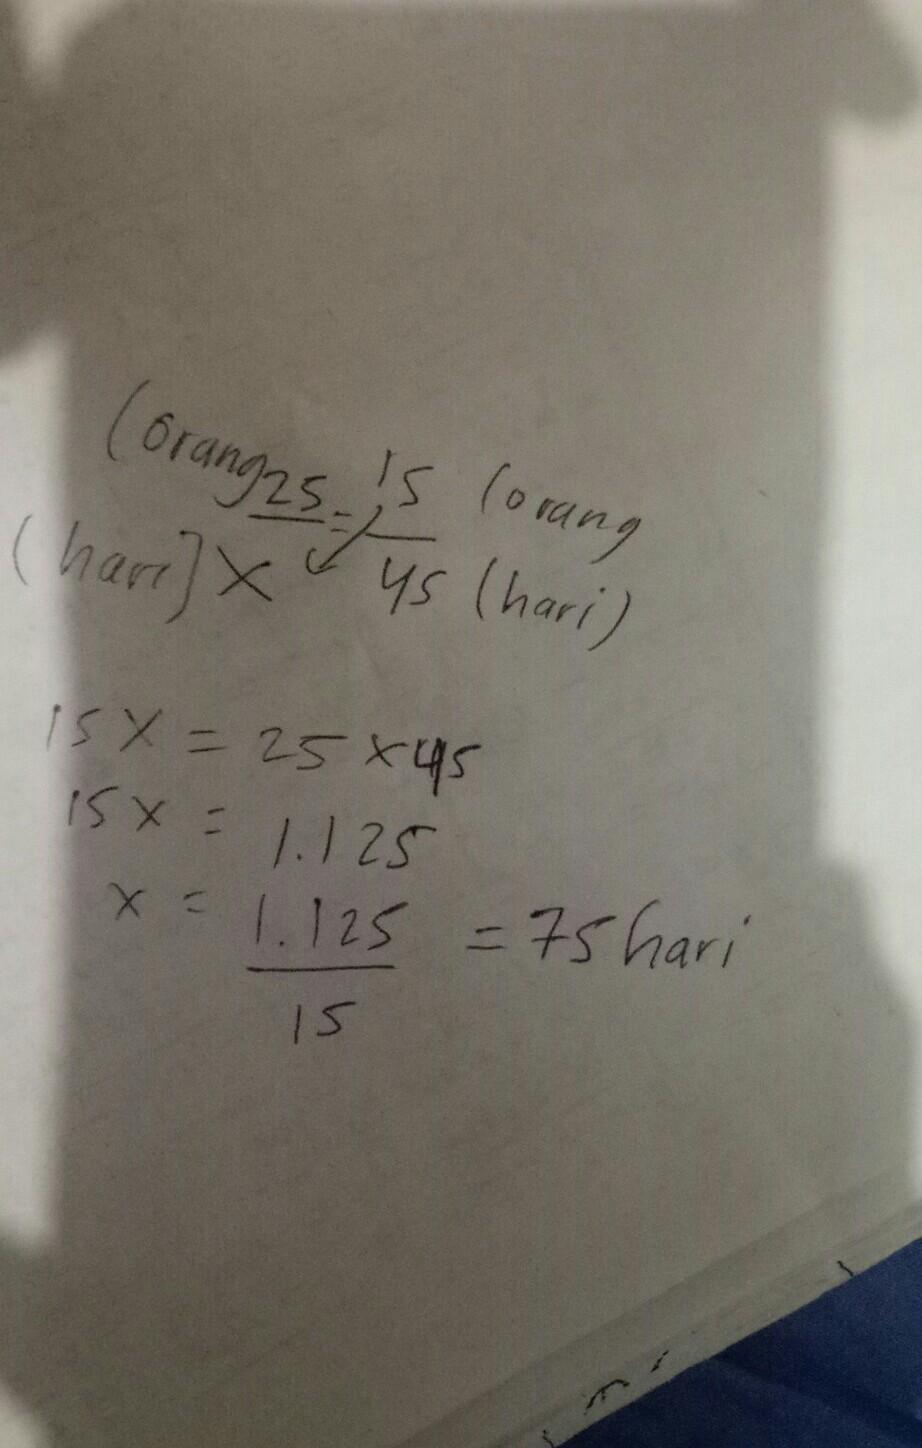 (orang 25 = 15 (orang
(hari] X 45 (hari)
15 X = 25 × 45
15 x = 1.125
x = 1.125 = 75 hari
15